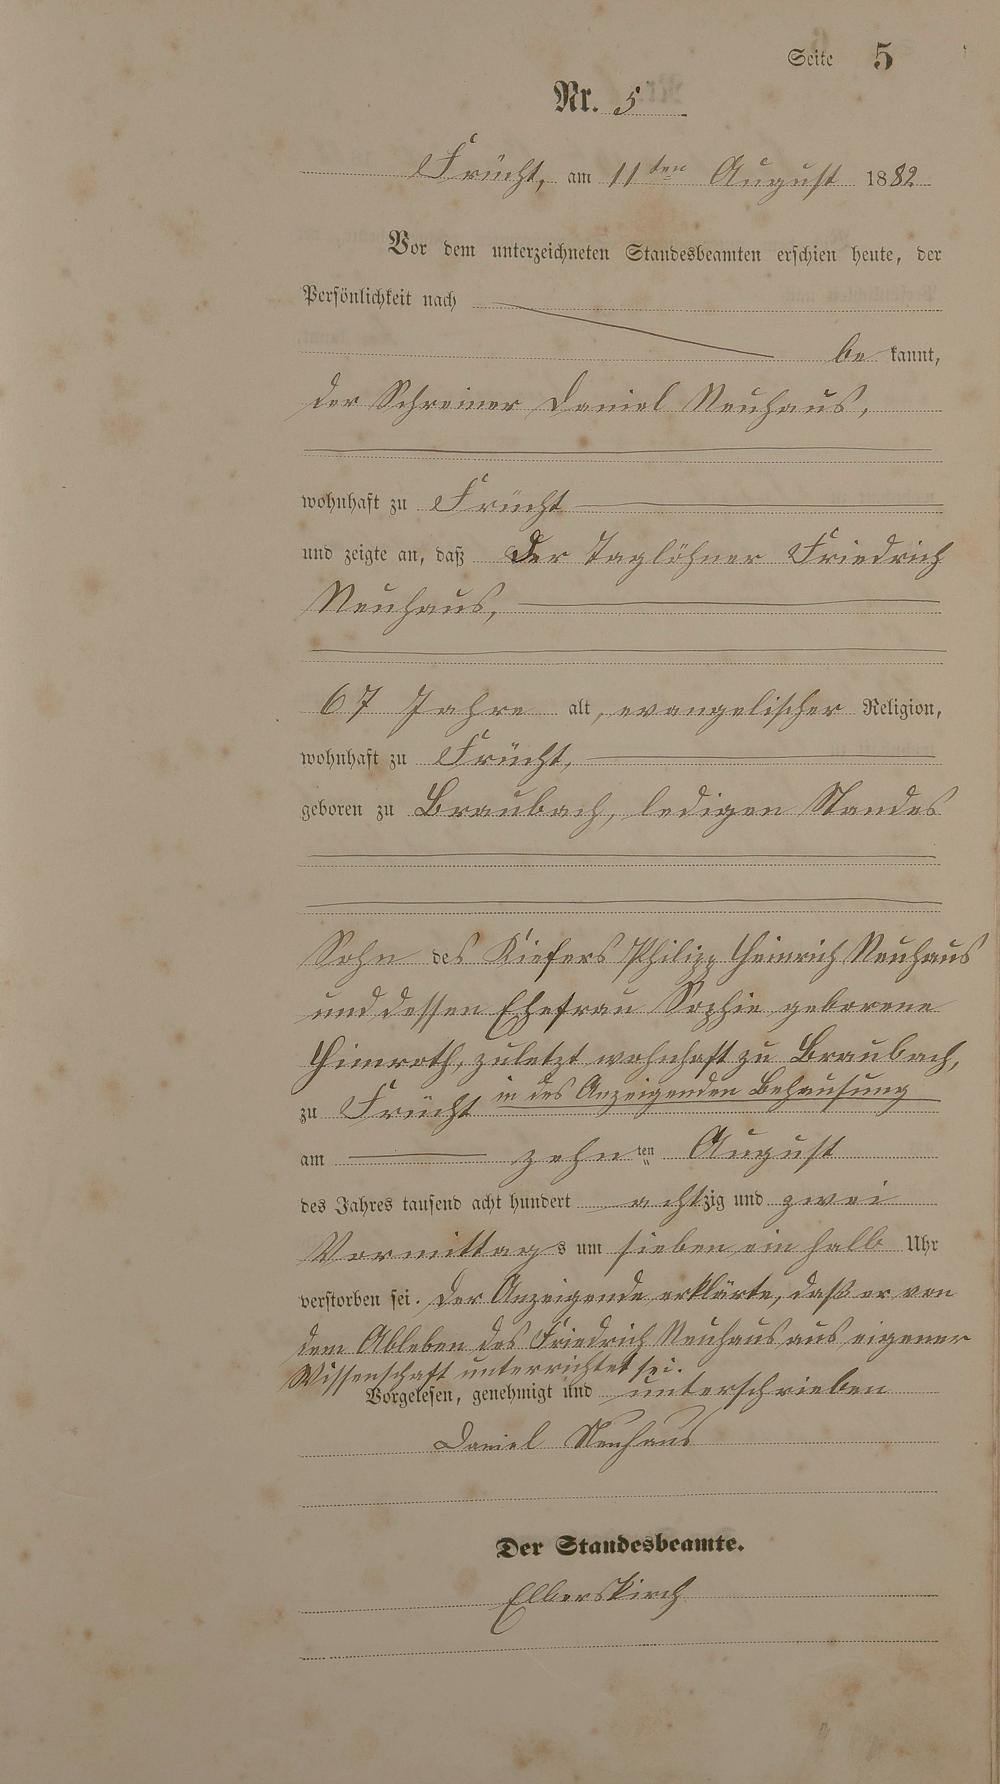 Seite 5
Nr. 5
Frücht, am 11ten August 1882
Vor dem unterzeichneten Standesbeamten erschien heute, der
Persönlichkeit nach
be kannt,
der Schreiner Daniel Neuhaus,
wohnhaft zu Frücht
und zeigte an, daß der Taglöhner Friedrich
Neuhaus,
67 Jahre alt, evangelischer Religion,
wohnhaft zu Frücht,
geboren zu Braubach, ledigen Standes
Sohn des Kiefers Philipp Heinrich Neuhaus
und dessen Ehefrau Sophie geborene
Himroth, zuletzt wohnhaft zu Braubach,
zu Frücht in des Anzeigenden Behausung
am zehnten August
des Jahres tausend acht hundert achtzig und zwei
Vormittags um sieben ein halb Uhr
verstorben sei. Der Anzeigende erklärte, daß er von
dem Ableben des Friedrich Neuhaus aus eigener
Wissenschaft unterrichtet sei.
Vorgelesen, genehmigt und unterschrieben
Daniel Neuhaus
Der Standesbeamte.
Elberskirch